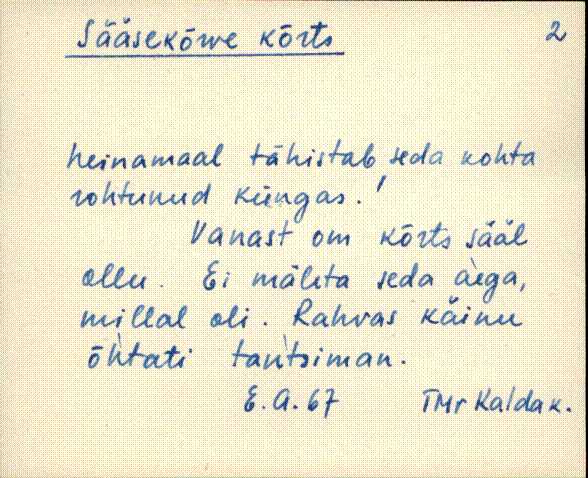 Sääsekõrve kõrts 2
heinamaal tähistab seda kohta
rohtunud küngas.'
Vanast om kõrts sääl
ollu. Ei mäleta seda aega,
millal oli. Rahvas käinu
õhtati tantsiman.
E.A.67 TMr Kaldak.